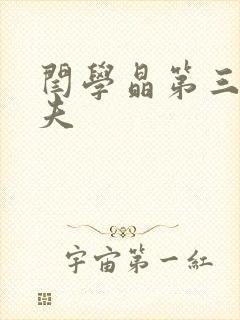 閆學晶第三
夫
宇宙第一紅